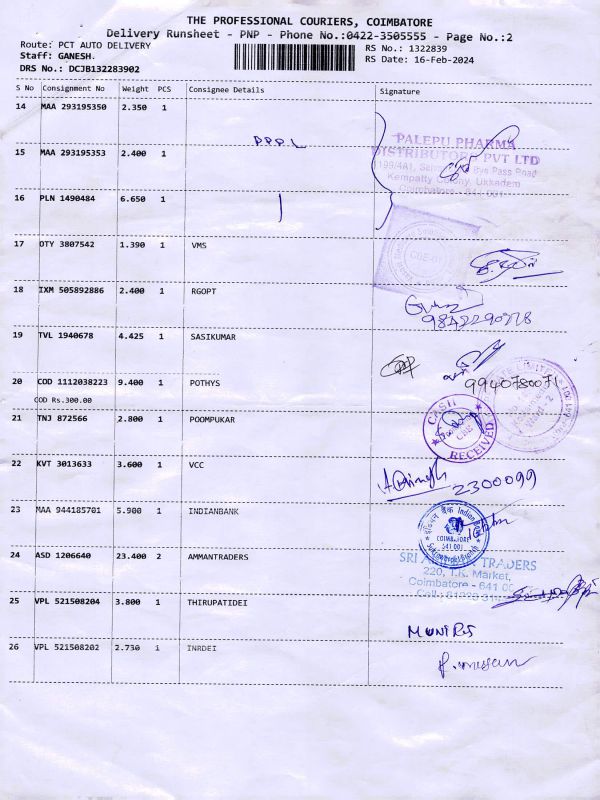 THE PROFESSIONAL COURIERS, COIMBATORE
Delivery Runsheet - PNP - Phone No.:0422-3505555 - Page No.:2
Route: PCT AUTO DELIVERY
RS No.: 1322839
Staff: GANESH.
RS Date: 16-Feb-2024
DRS No.: DCJB132283902
S No Consignment No Weight PCS Consignee Details Signature
14 MAA 293195350 2.350 1
PPPL
PALEPU PHARMA
DISTRIBUTORS PVT LTD
15 MAA 293195353 2.400 1
Bye Pass Road
Kempatty Colony, Ukkadam
Coimbatore - 641 001
16 PLN 1490484 6.650 1
17 DTY 3807542 1.390 1 VMS
18 IXM 505892886 2.400 1 RGOPT
19 TVL 1940678 4.425 1 SASIKUMAR
20 COD 1112038223 9.400 1 POTHYS
9940780071
COD Rs.300.00
21 TNJ 872566 2.800 1 POOMPUKAR
CASH
CBE
RECEIVED
22 KVT 3013633 3.600 1 VCC
2300099
23 MAA 944185701 5.900 1 INDIANBANK
इंडियन बैंक Indian Bank
COIMBATORE
641 001
24 ASD 1206640 23.400 2 AMMANTRADERS
SRI TRADERS
220, T.K. Market,
Coimbatore - 641 00
25 VPL 521508204 3.800 1 THIRUPATIDEI
26 VPL 521508202 2.730 1 INRDEI